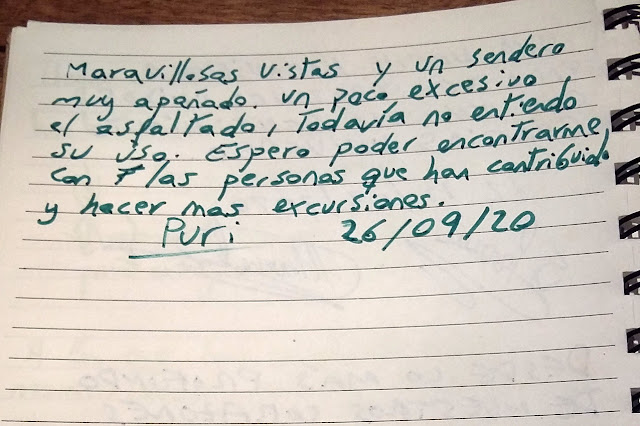 Maravillosas vistas y un sendero
muy apañado. un poco excesivo
el asfaltado, Todavía no entiendo
su uso. Espero poder encontrarme,
con las personas que han contribuido
y hacer mas excursiones.
Puri 26/09/20